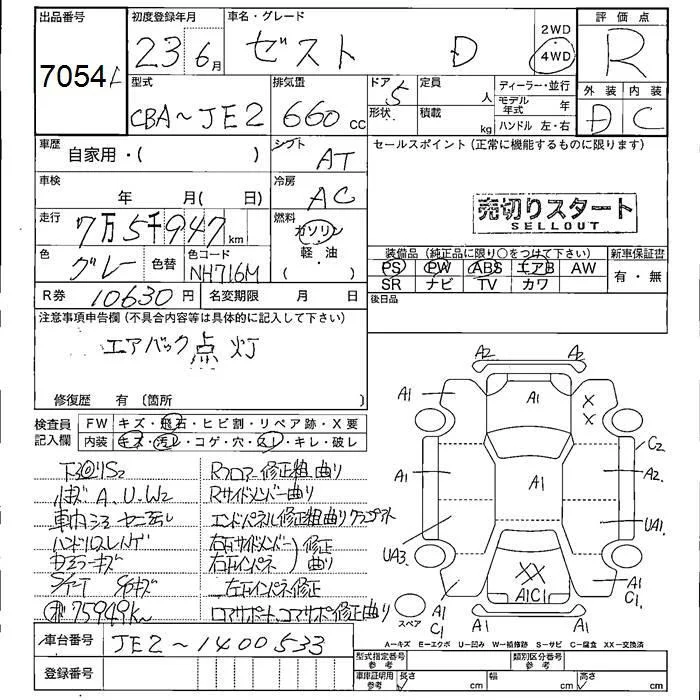 出品番号
7054
初度登録年月
23 6月
車名・グレード
ゼスト D
2WD
4WD
評価点
R
型式
CBA～JE2
排気量
660 cc
ドア 5
形状
定員 人
積載 kg
ディーラー・並行
モデル年式 年
ハンドル 左・右
外装 内装
D C
車歴
自家用・( )
シフト AT
車検
年 月( 日)
冷房 AC
走行
7万5千947 km
燃料
ガソリン
軽・油
( ・ )
色
グレー
色替
色コード
NH716M
R券 10630 円
名変期限 月 日
セールスポイント (正常に機能するものに限ります)
売切りスタート
SELLOUT
装備品 (純正品に限り○をつけて下さい)
新車保証書
PS PW ABS エアB AW
SR ナビ TV カワ
有・無
後日品
注意事項申告欄(不具合内容等は具体的に記入して下さい)
エアバック点灯
修復歴 有 (箇所 )
検査員
記入欄
FW キズ・飛石・ヒビ割・リペア跡・X要
内装 キズ・汚レ・コゲ・穴・スレ・キレ・破レ
下廻りS2
A.U.W2
ハンドル
キズ
75949km
Rフロアー修正粗曲り
Rサイドメンバー曲り
エンドパネル修正粗曲り
右左サイドメンバー)修正
右左インパネ)曲り
左右インパネ修正
コアサポート修正曲り
車台番号 JE2～1400533
登録番号
A2 A2
A1 A1 X X
C2
A1 A1 A2
UA3 UA1
XX
A1C1
A1 C1
A1 A1 C1
スペア
A-キズ E-エクボ U-凹み W-補修跡 S-サビ C-腐食 XX-交換済
型式指定番号 参考
類別区分番号 参考
車庫証明用 参考
長さ cm 幅 cm 高さ cm